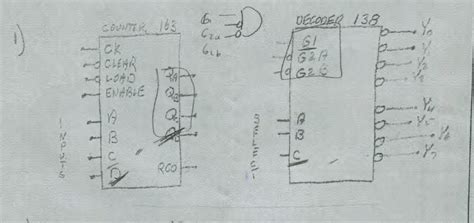 1)
COUNTER 163
CK
CLEAR
LOAD
ENABLE
A
B
C
D
INPUTS
QA
QB
QC
RCO
G1
G2a
G2b
DECODER 138
G1
G2A
G2B
SELECT
A
B
C
Y0
Y1
Y2
Y3
Y4
Y5
Y6
Y7